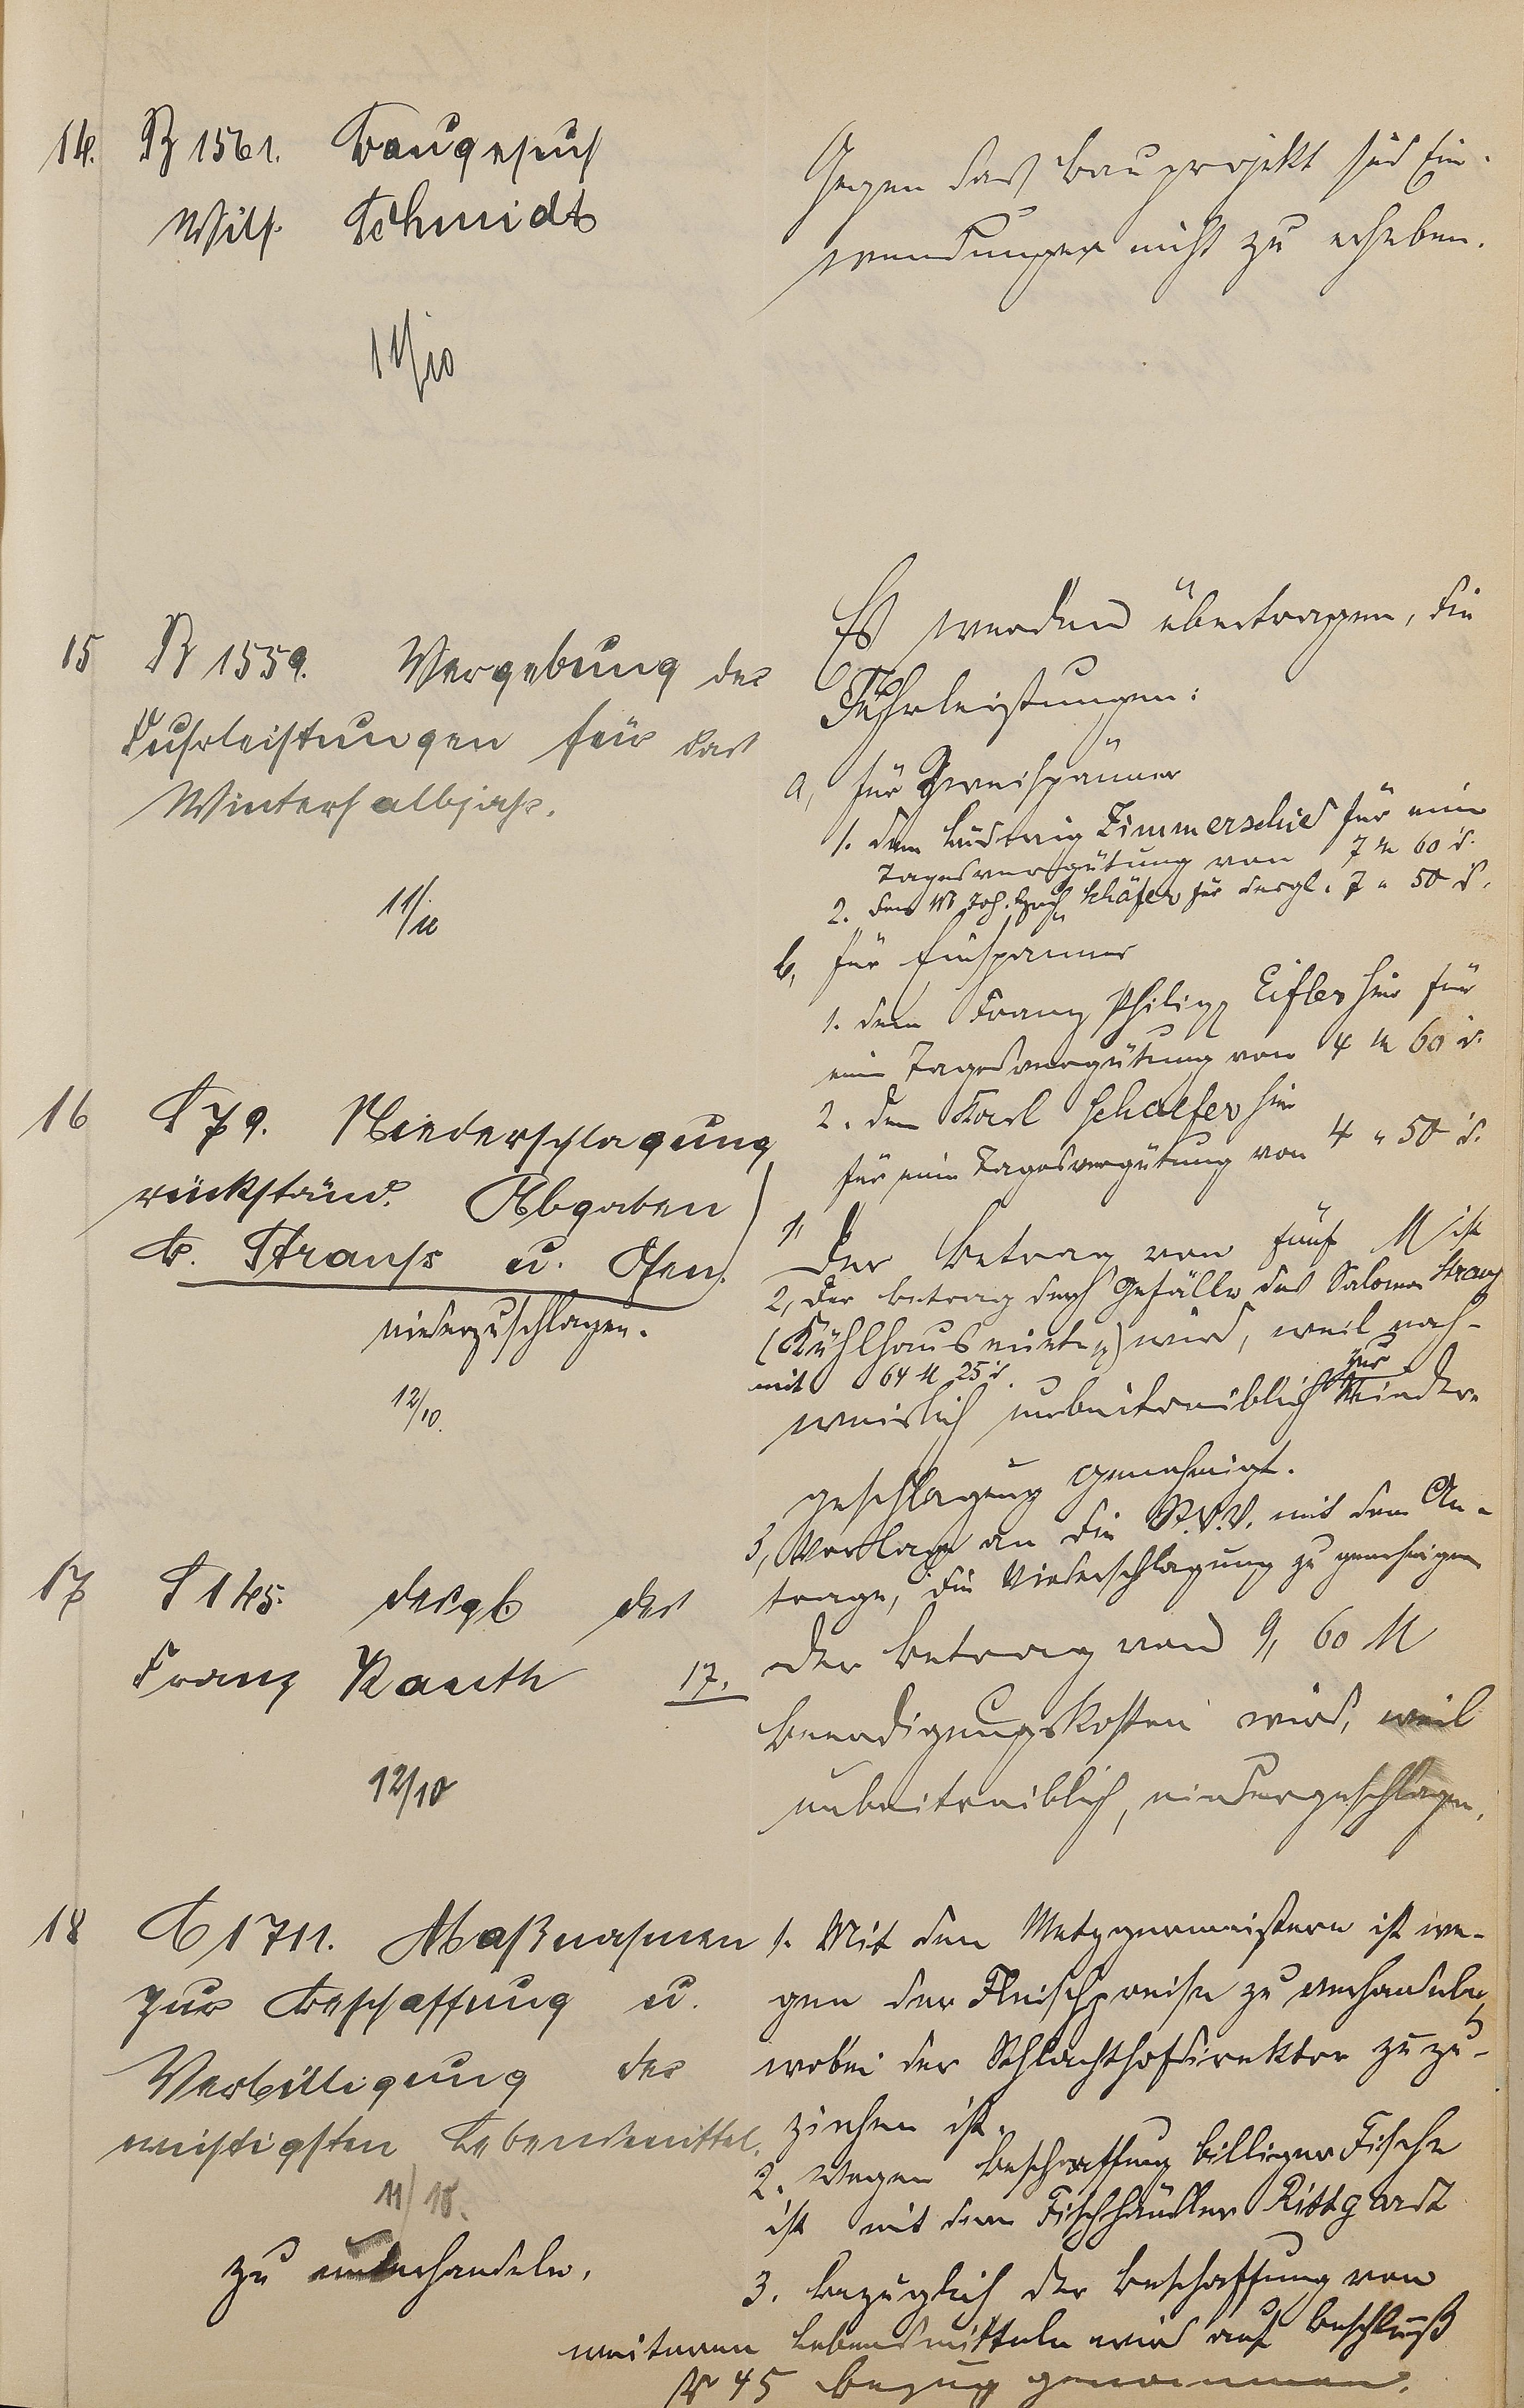 14. B 1561. Baugesuch
Wilh. Schmidt
11/10
Gegen das Bauprojekt sind Ein-
wendungen nicht zu erheben.
15 B 1559. Vergebung der
Fuhrleistungen für das
Winterhalbjahr.
11/10
Es werden übertragen, die
Fuhrleistungen:
a, für Zweispänner
1. dem Ludwig Zimmerschied für eine
Tagesvergütung von 7 M 60 d.
2. dem Joh. Schäfer für desgl. 7 " 50 d.
b, für Einspänner
1. dem Franz Philipp Eifler hier für
eine Tagesvergütung von 4 M 60 d.
2. dem Karl Schaefer hier
für eine Tagesvergütung von 4 " 50 d.
16 S 79. Niederschlagung
rückständ. Abgaben
B. Strauss u. Gen.
1, Der Betrag von fünf M ist
niederzuschlagen.
12/10.
2, Der Betrag der Gefälle des Salomon Strauß
(Kühlhausmiete) wird, weil nach-
mit 64 M 25 d.
weislich unbeitreiblich zur Nieder-
geschlagung genehmigt.
3, Vorlage an die St.V.V. mit dem An-
trage, die Niederschlagung zu genehmigen
17 S 145. desgl. des
Franz Kauth
12/10
17. Der Betrag von 9,60 M
Beerdigungskosten wird, weil
unbeitreiblich, niedergeschlagen.
18 C 1711. Maßnahmen
zur Beschaffung u.
Verbilligung der
wichtigsten Lebensmittel.
11/10.
1. Mit den Metzgermeistern ist we-
gen der Fleischpreise zu verhandeln,
wobei der Schlachthofdirektor zuzu-
ziehen ist.
2. Wegen Beschaffung billiger Fische
ist mit dem Fischhändler Rittgardt
zu unterhandeln.
3. Bezüglich der Beschaffung von
weiteren Lebensmitteln wird auf Beschluß
N 45 Bezug genommen.